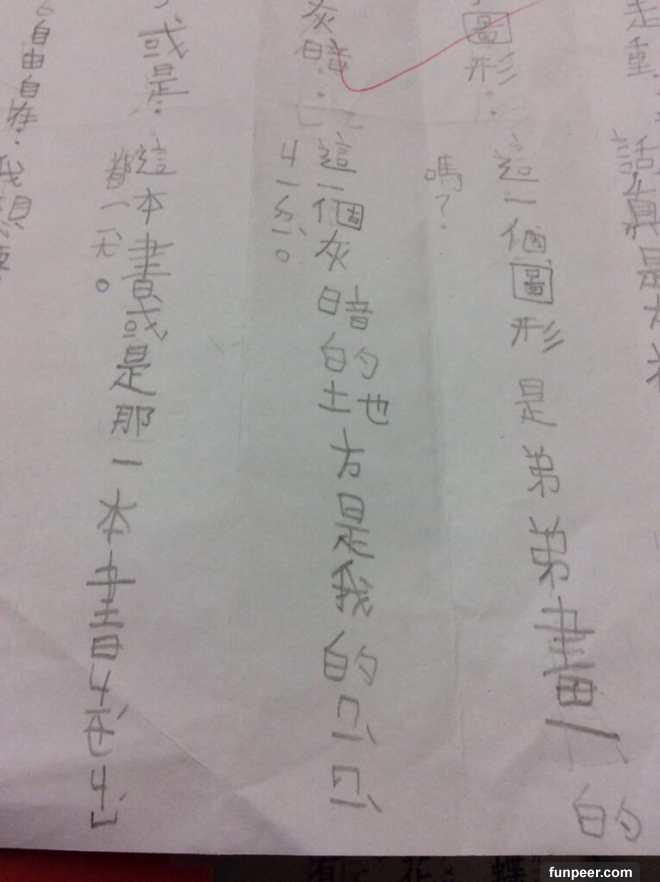 話真是
圖形：這一個圖形是弟弟畫的
嗎？
灰暗：這一個灰暗的地方是我的ㄇㄧˋㄇㄧˋ
ㄐㄧㄉㄧˋ。
或是：這本書或是那一本書
都一ㄧㄤˋ。
自由自在：我想要
funpeer.com